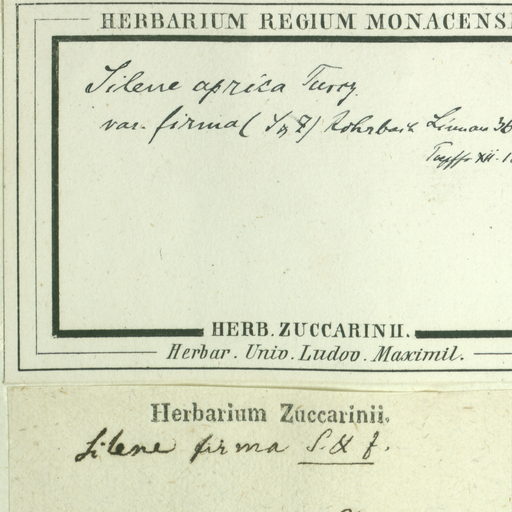 HERBARIUM REGIUM MONACENS
Silene aprica Turcz.
var. firma (S & Z) Rohrbach Linnaea 36
XII. 1
HERB. ZUCCARINII.
Herbar. Univ. Ludov. Maximil.
Herbarium Zuccarinii.
Silene firma S. & Z.